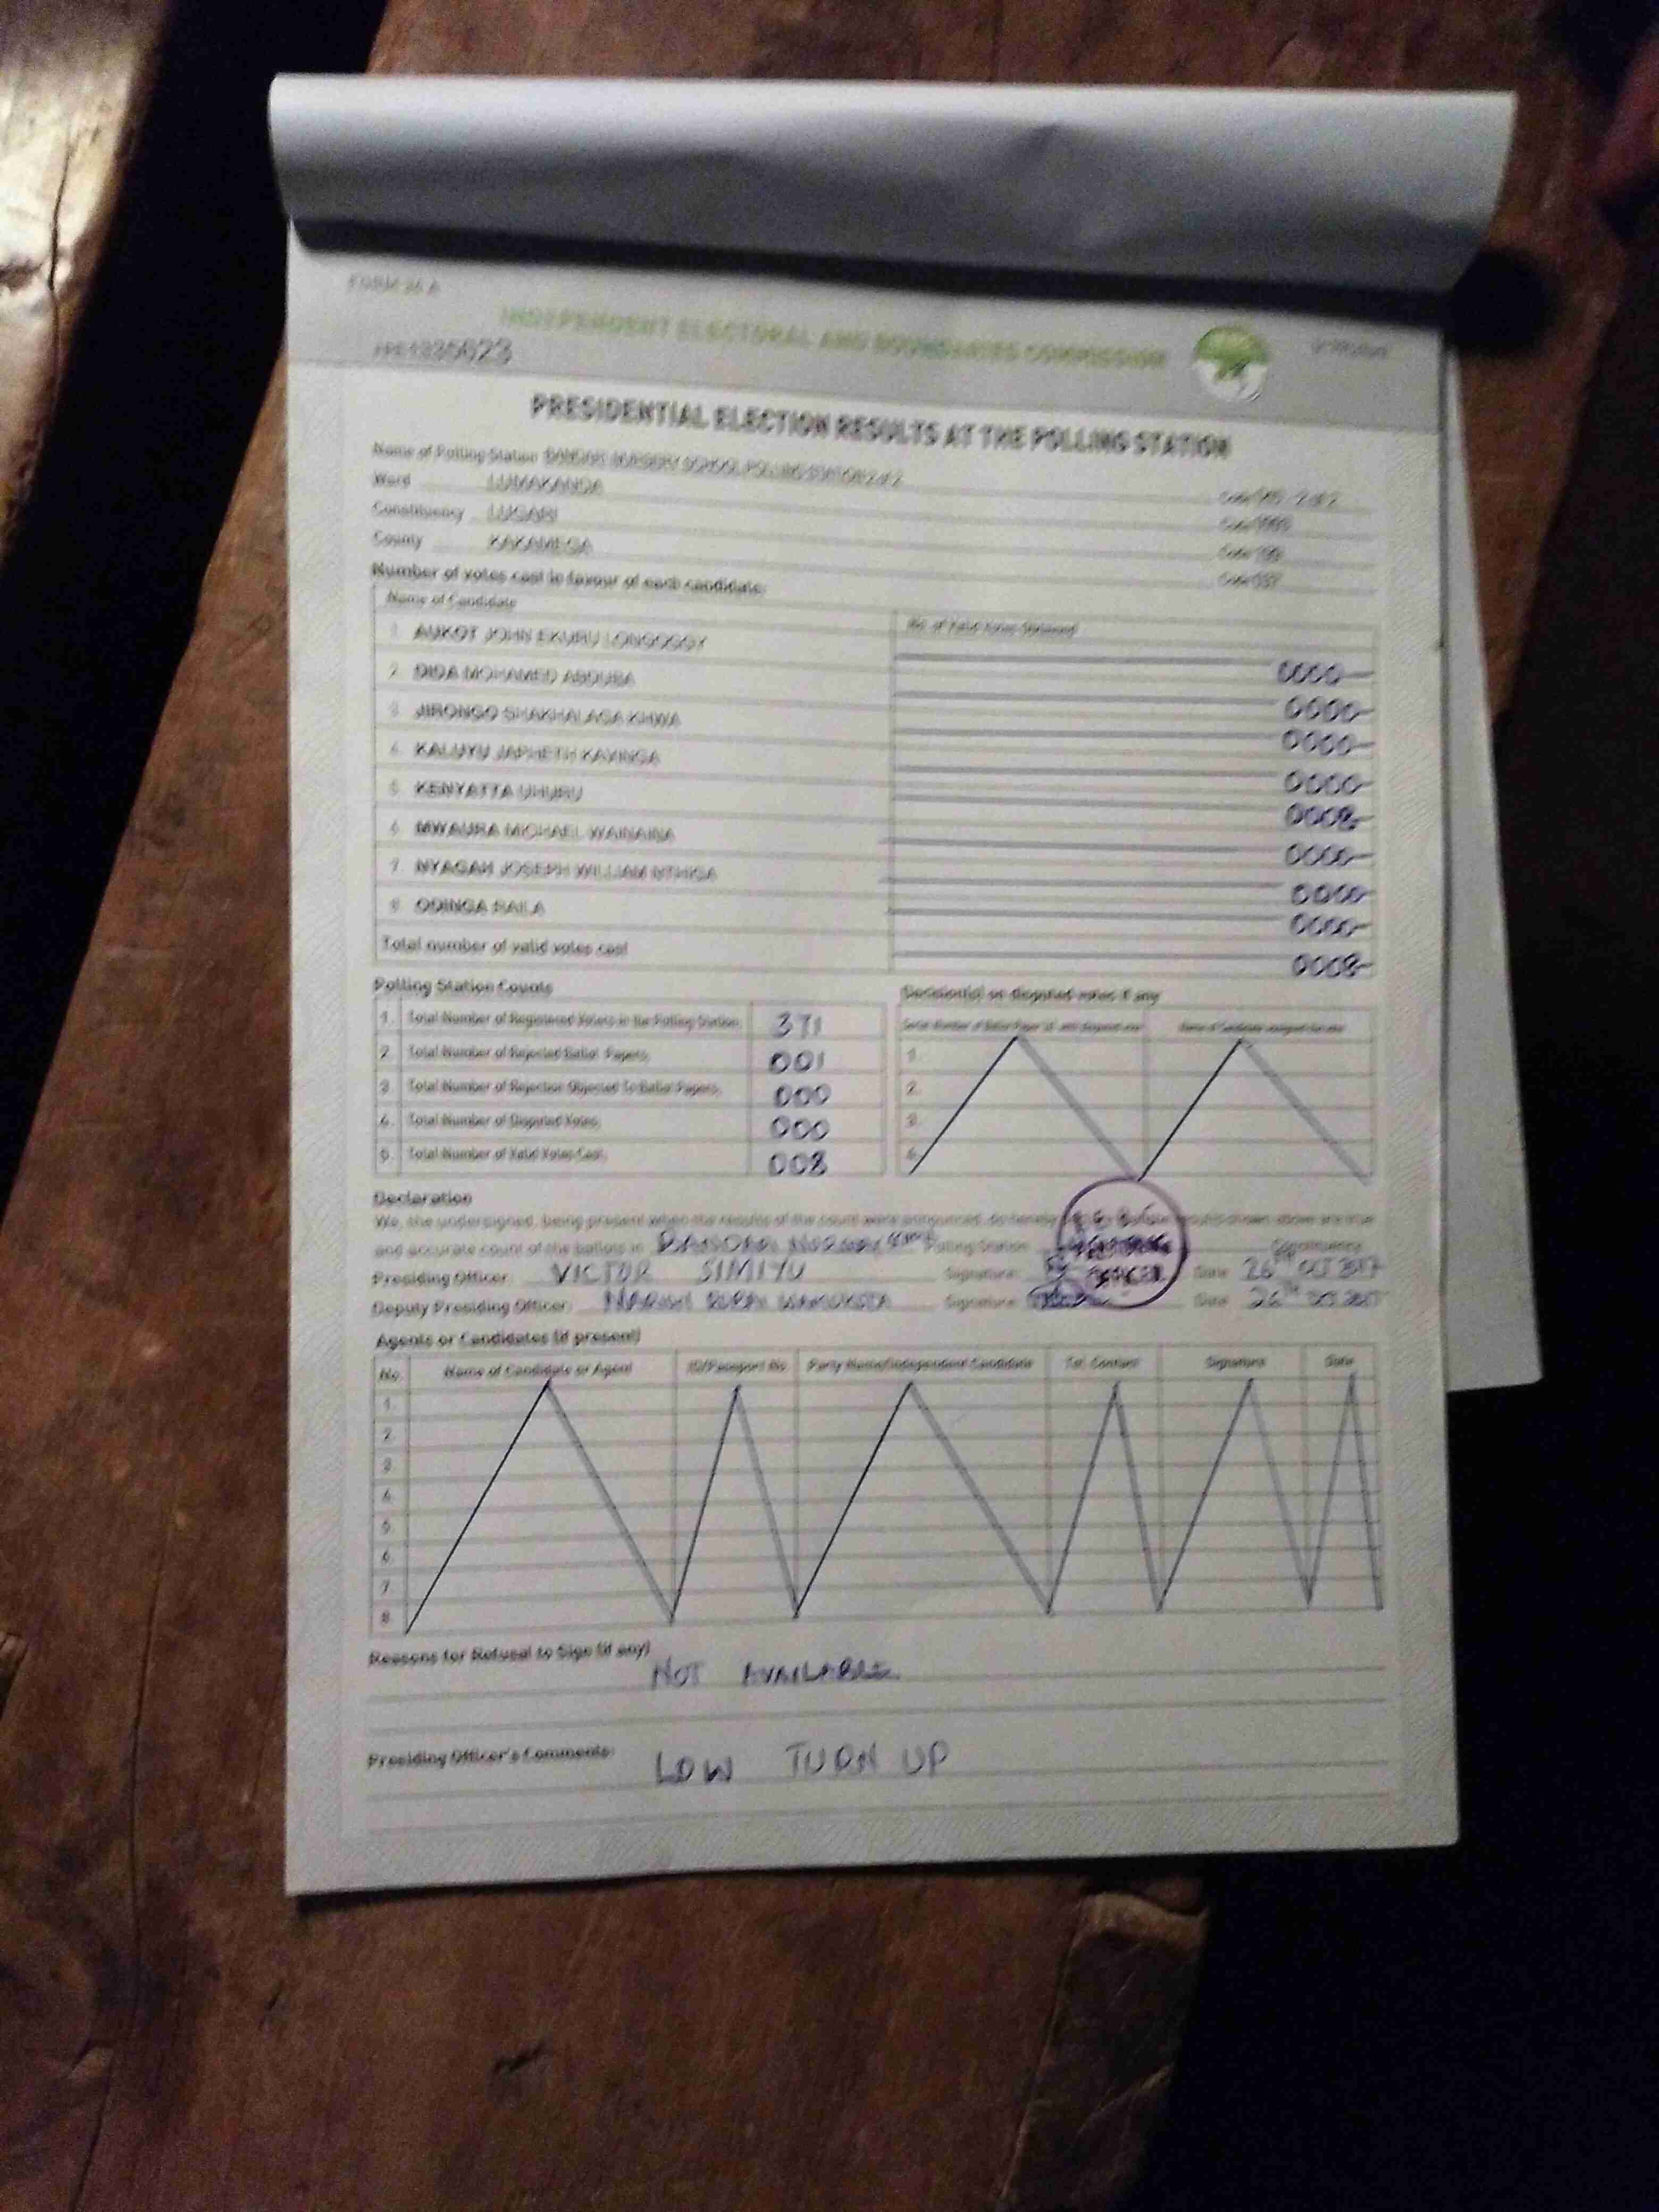 FORM 34 A
INDEPENDENT ELECTORAL AND BOUNDARIES COMMISSION
PRESIDENTIAL ELECTION RESULTS AT THE POLLING STATION
Name of Polling Station NURSERY SCHOOL POLLING STATION 2 of 2
Ward LUMAKANDA
Constituency LUGARI
County KAKAMEGA
Number of votes cast in favour of each candidate:
Name of Candidate No. of Valid Votes Obtained
1. AUKOT JOHN EKURU LONGOGGY 0000
2. DIDA MOHAMED ABDUBA 0000
3. JIRONGO SHAKHALAGA KHWA 0000
4. KALUYU JAPHETH KAVINGA 0000
5. KENYATTA UHURU 0008
6. MWAURA MICHAEL WAINAINA 0000
7. NYAGAH JOSEPH WILLIAM NTHIGA 0000
8. ODINGA RAILA 0000
Total number of valid votes cast 0008
Polling Station Counts
1. Total Number of Registered Voters in the Polling Station 371
2. Total Number of Rejected Ballot Papers 001
3. Total Number of Rejection Objected To Ballot Papers 000
4. Total Number of Disputed Votes 000
5. Total Number of Valid Votes Cast 008
Decision(s) on disputed votes if any
1.
2.
3.
4.
Declaration
We, the undersigned, being present when the results of the count were announced, do hereby
and accurate count of the ballots in Polling Station Constituency
Presiding Officer VICTOR SIMIYU Signature Date 26TH OCT 2017
Deputy Presiding Officer: Signature Date 26TH OCT 2017
Agents or Candidates (if present)
No. Name of Candidate or Agent ID/Passport No Party Name/Independent Candidate Tel. Contact Signature Date
1.
2.
3.
4.
5.
6.
7.
8.
Reasons for Refusal to Sign (if any)
NOT AVAILABLE
Presiding Officer's Comments: LOW TURN UP